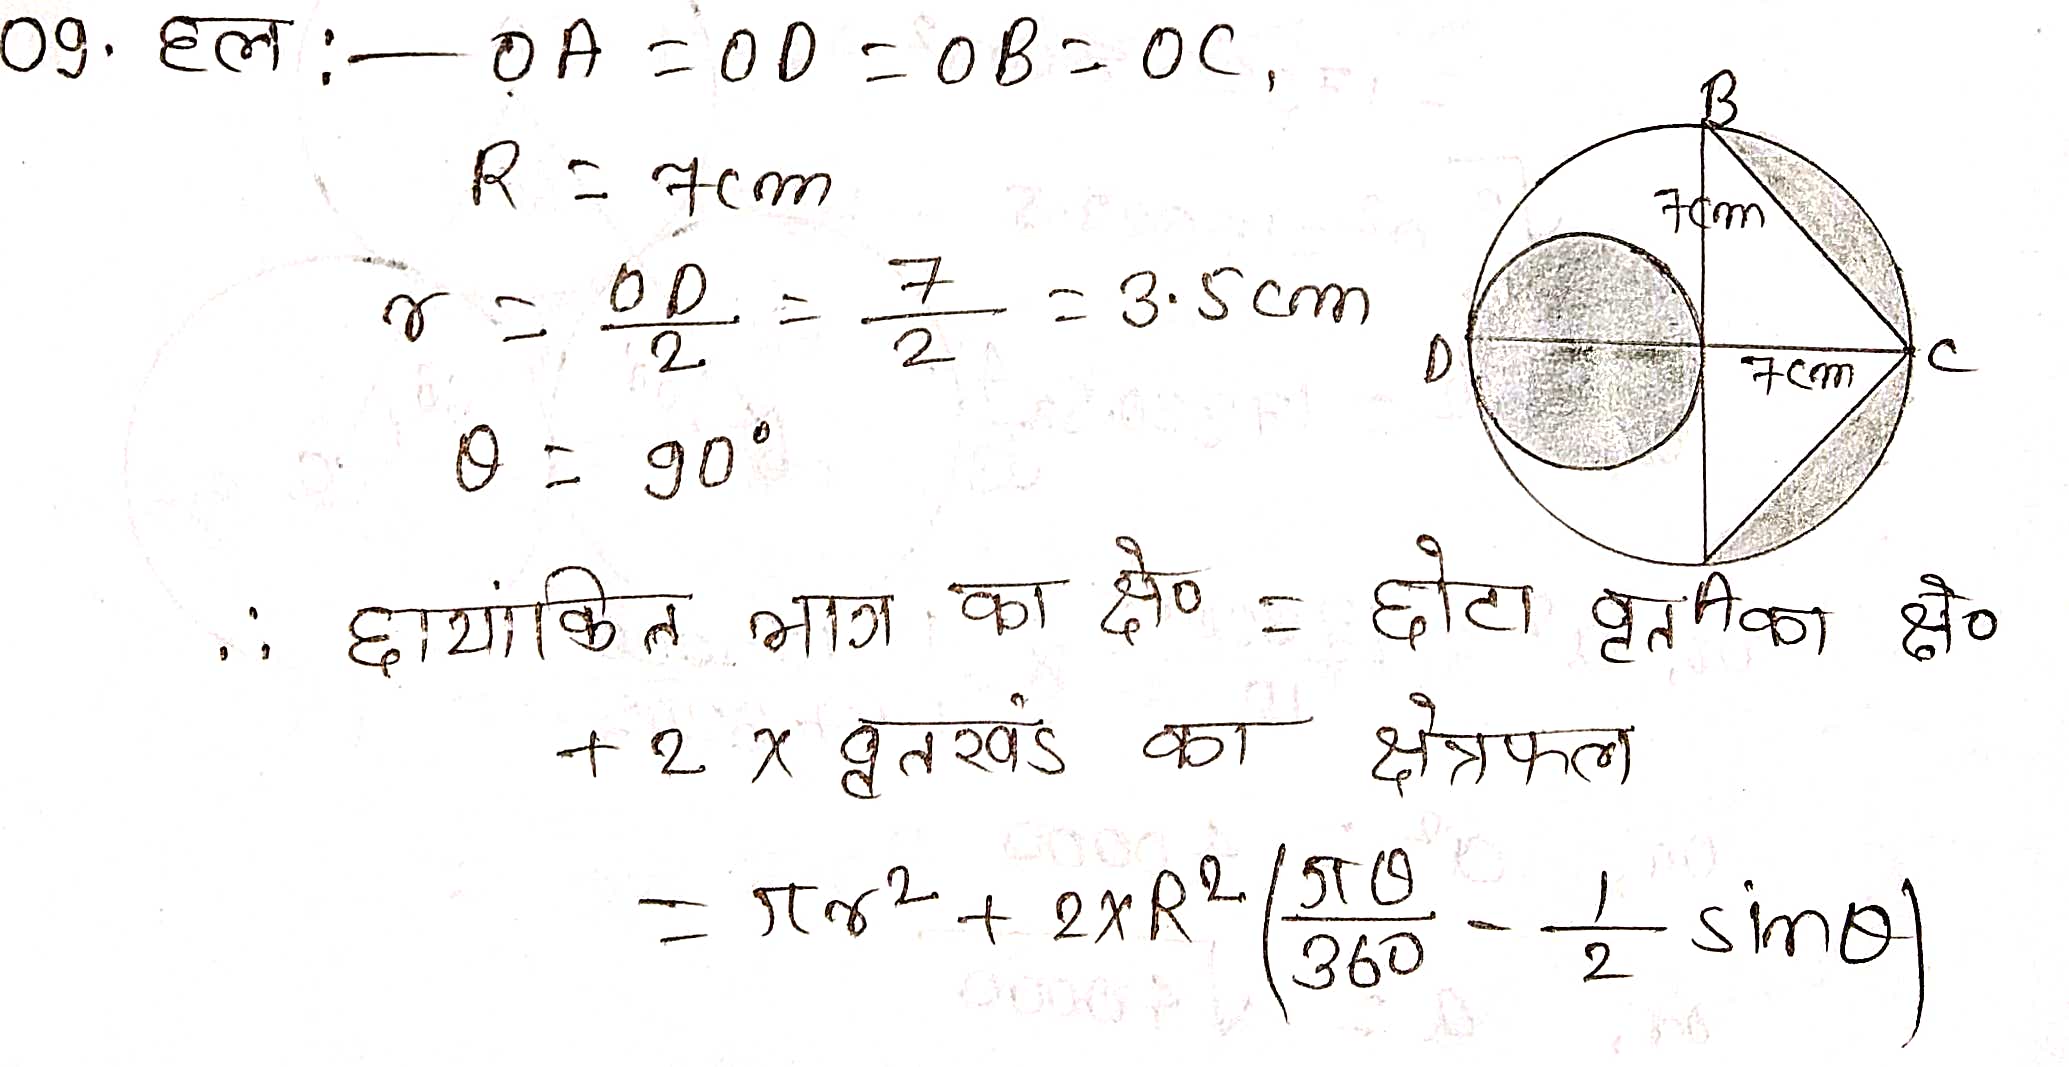 09. हल :— OA = OD = OB = OC,
R = 7cm
r = OD/2 = 7/2 = 3.5cm
θ = 90°
B
7cm
D
7cm
C
A
∴ छायांकित भाग का क्षे० = छोटा वृत का क्षे०
+ 2 x वृतखंड का क्षेत्रफल
= πr² + 2xR² (πθ/360 - 1/2 sinθ)